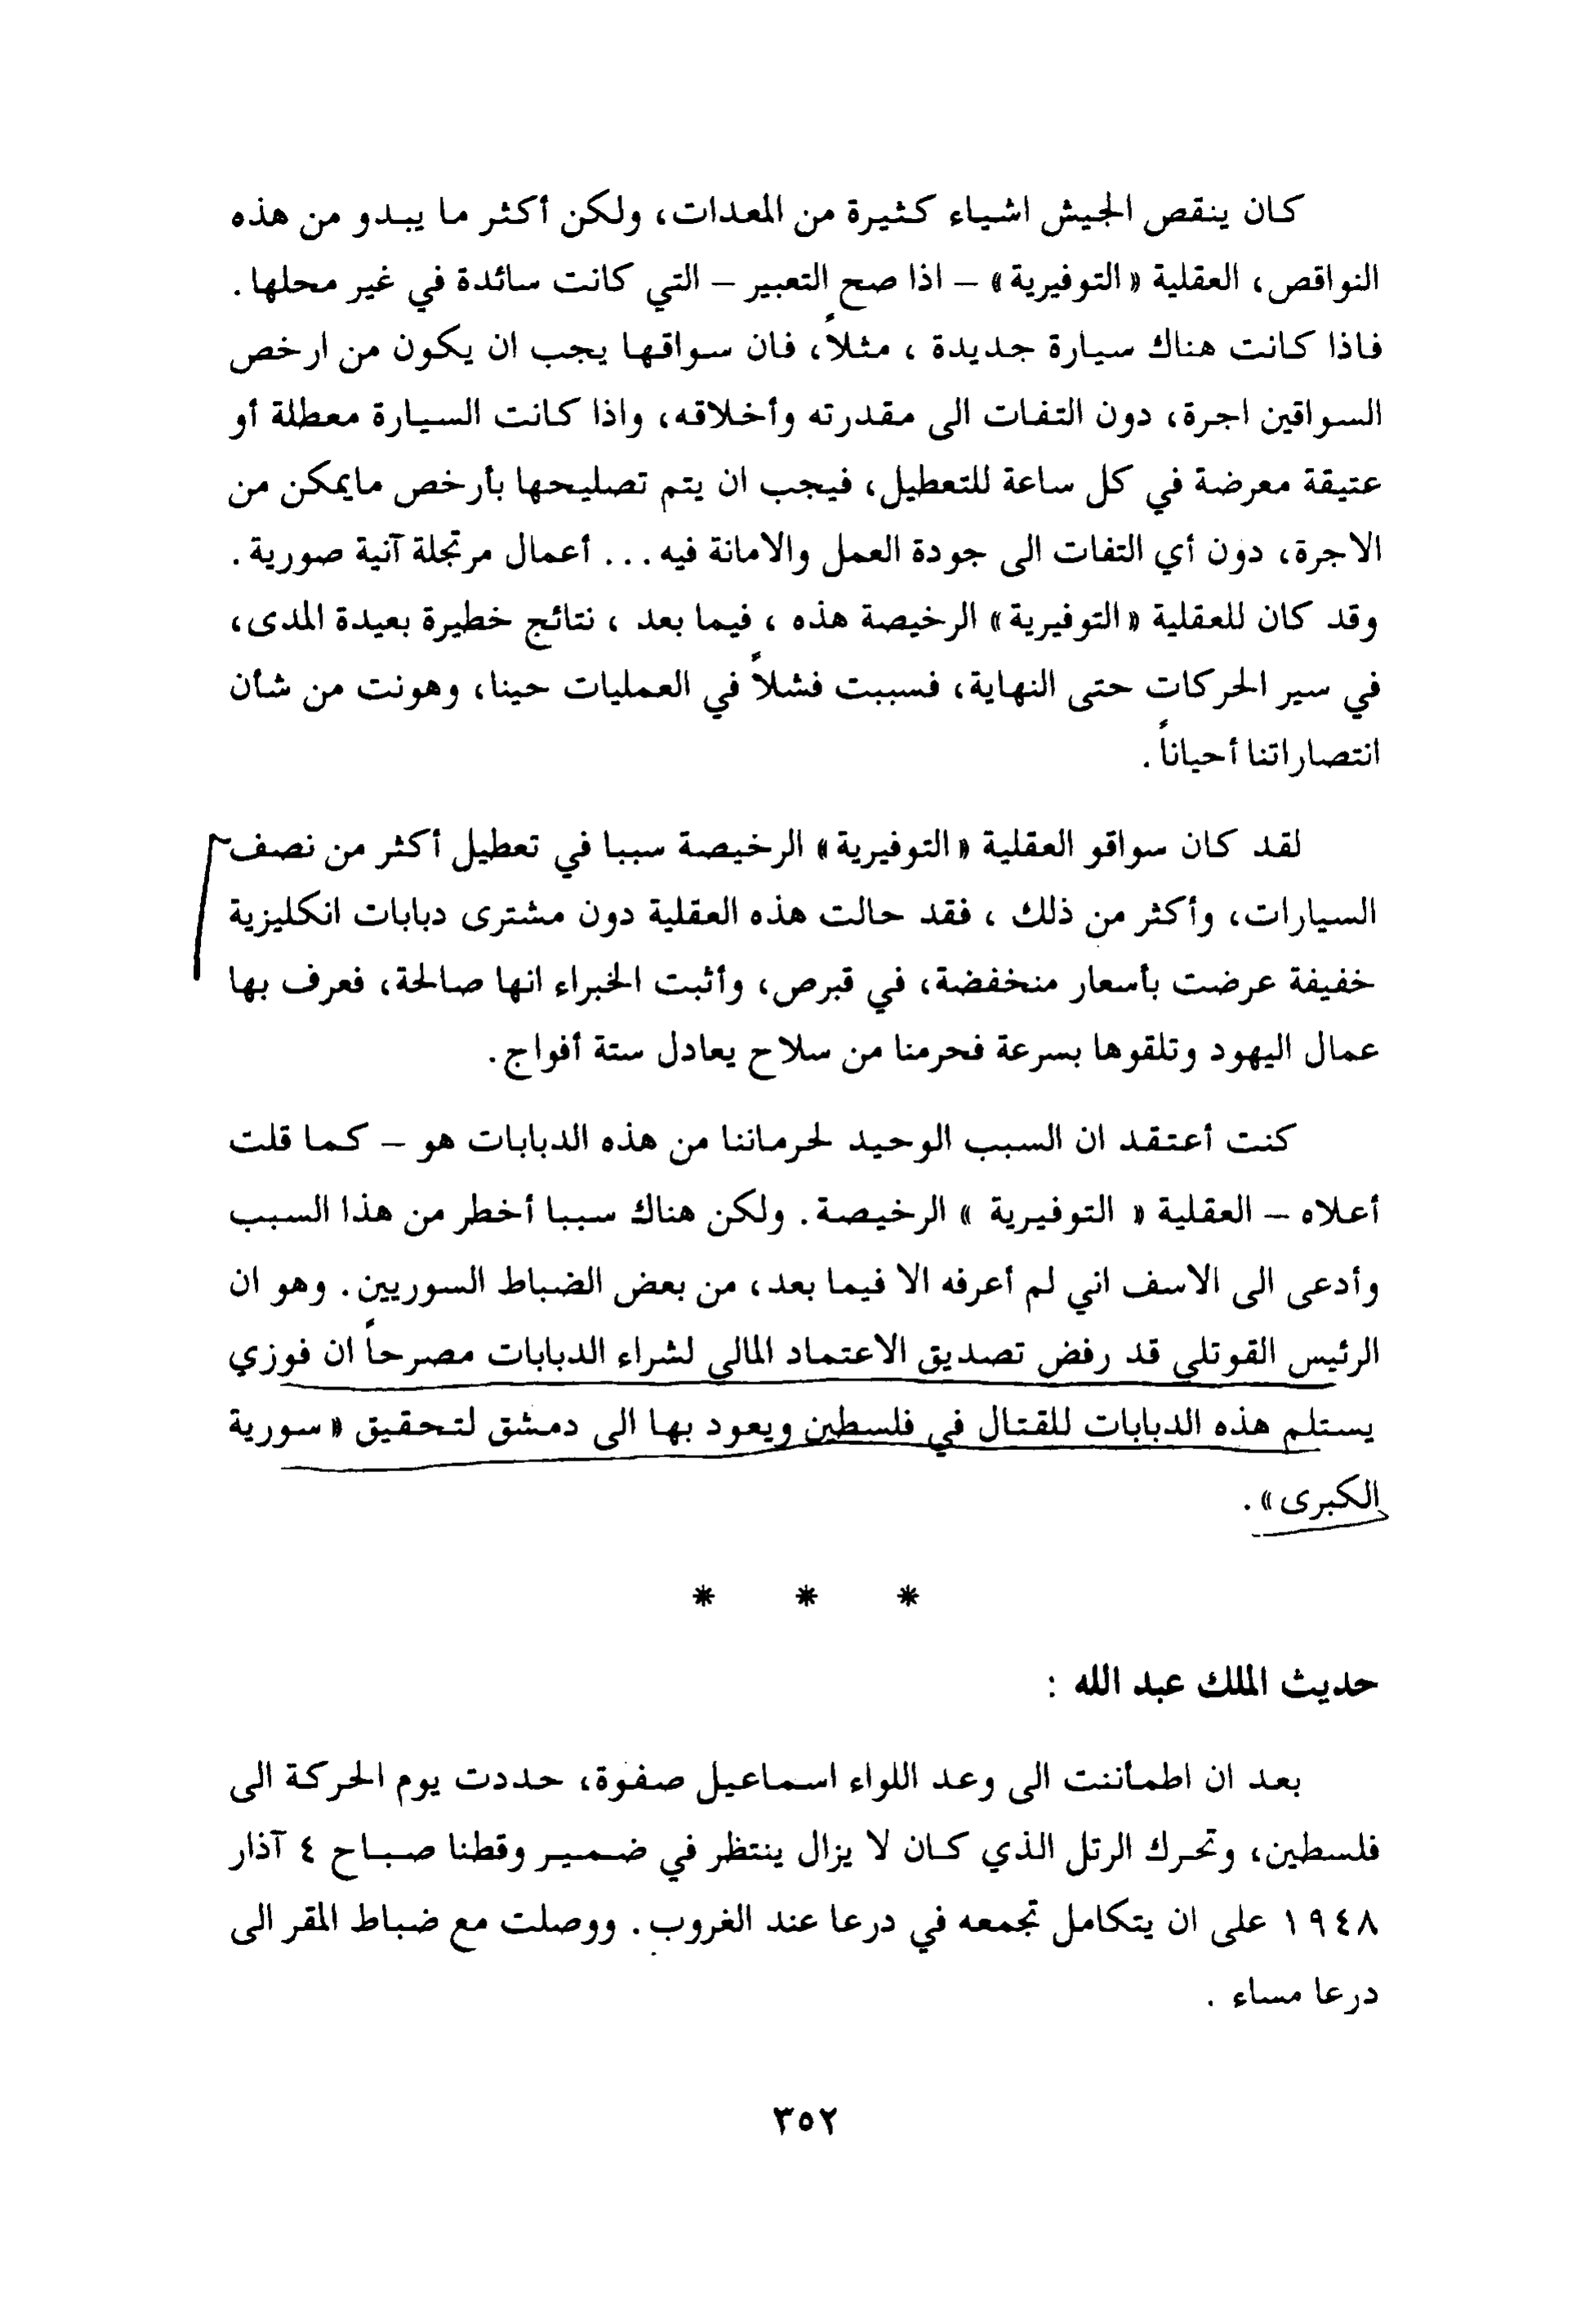 كان ينقص الجيش اشياء كثيرة من المعدات، ولكن أكثر ما يبدو من هذه
النواقص، العقلية «التوفيرية» – اذا صح التعبير – التي كانت سائدة في غير محلها.
فاذا كانت هناك سيارة جديدة ، مثلاً، فان سواقها يجب ان يكون من ارخص
السواقين اجرة، دون التفات الى مقدرته وأخلاقه، واذا كانت السيارة معطلة أو
عتيقة معرضة في كل ساعة للتعطيل، فيجب ان يتم تصليحها بأرخص مايمكن من
الاجرة، دون أي التفات الى جودة العمل والامانة فيه... أعمال مرتجلة آنية صورية.
وقد كان للعقلية «التوفيرية» الرخيصة هذه ، فيما بعد ، نتائج خطيرة بعيدة المدى،
في سير الحركات حتى النهاية، فسببت فشلاً في العمليات حينا، وهونت من شأن
انتصاراتنا أحياناً.
لقد كان سواقو العقلية «التوفيرية» الرخيصة سببا في تعطيل أكثر من نصف
السيارات، وأكثر من ذلك ، فقد حالت هذه العقلية دون مشترى دبابات انكليزية
خفيفة عرضت بأسعار منخفضة، في قبرص، وأثبت الخبراء انها صالحة، فعرف بها
عمال اليهود وتلقوها بسرعة فحرمنا من سلاح يعادل ستة أفواج.
كنت أعتقد ان السبب الوحيد لحرماننا من هذه الدبابات هو – كما قلت
أعلاه – العقلية « التوفيرية » الرخيصة. ولكن هناك سببا أخطر من هذا السبب
وأدعى الى الاسف اني لم أعرفه الا فيما بعد، من بعض الضباط السوريين. وهو ان
الرئيس القوتلي قد رفض تصديق الاعتماد المالي لشراء الدبابات مصرحاً ان فوزي
يستلم هذه الدبابات للقتال في فلسطين ويعود بها الى دمشق لتحقيق «سورية
الكبرى».
* * *
حديث الملك عبد الله :
بعد ان اطمأننت الى وعد اللواء اسماعيل صفوة، حددت يوم الحركة الى
فلسطين، وتحرك الرتل الذي كان لا يزال ينتظر في ضمير وقطنا صباح ٤ آذار
١٩٤٨ على ان يتكامل تجمعه في درعا عند الغروب. ووصلت مع ضباط المقر الى
درعا مساء .
٣٥٢